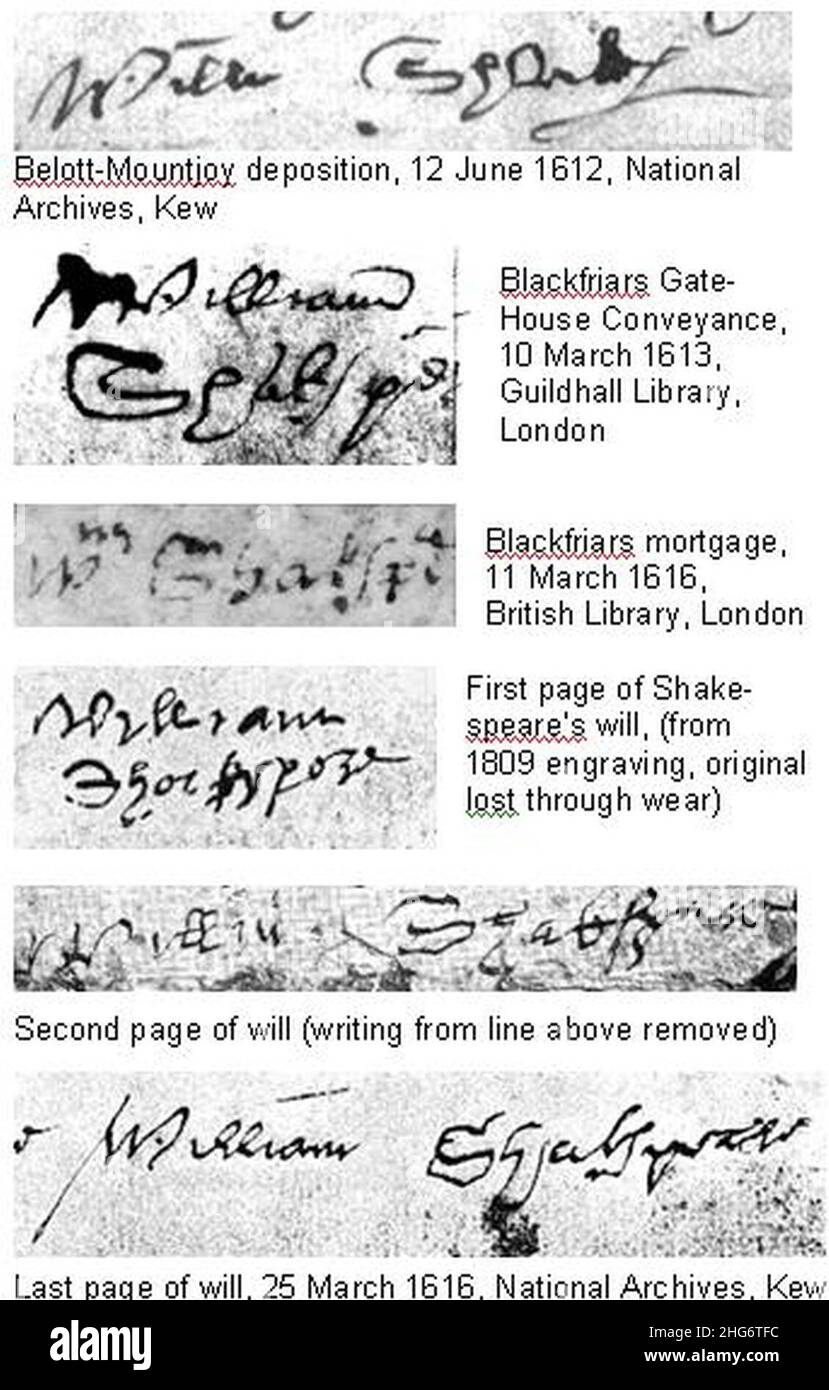 Willm Shakp
Belott-Mountjoy deposition, 12 June 1612, National
Archives, Kew
William
Shakspe
Blackfriars Gate-
House Conveyance,
10 March 1613,
Guildhall Library,
London
Wm Shakspe
Blackfriars mortgage,
11 March 1616,
British Library, London
William
Shakspere
First page of Shake-
speare's will, (from
1809 engraving, original
lost through wear)
Willm Shakspere
Second page of will (writing from line above removed)
William Shakspeare
Last page of will, 25 March 1616, National Archives, Kew
alamy
Image ID: 2HG6TFC
www.alamy.com